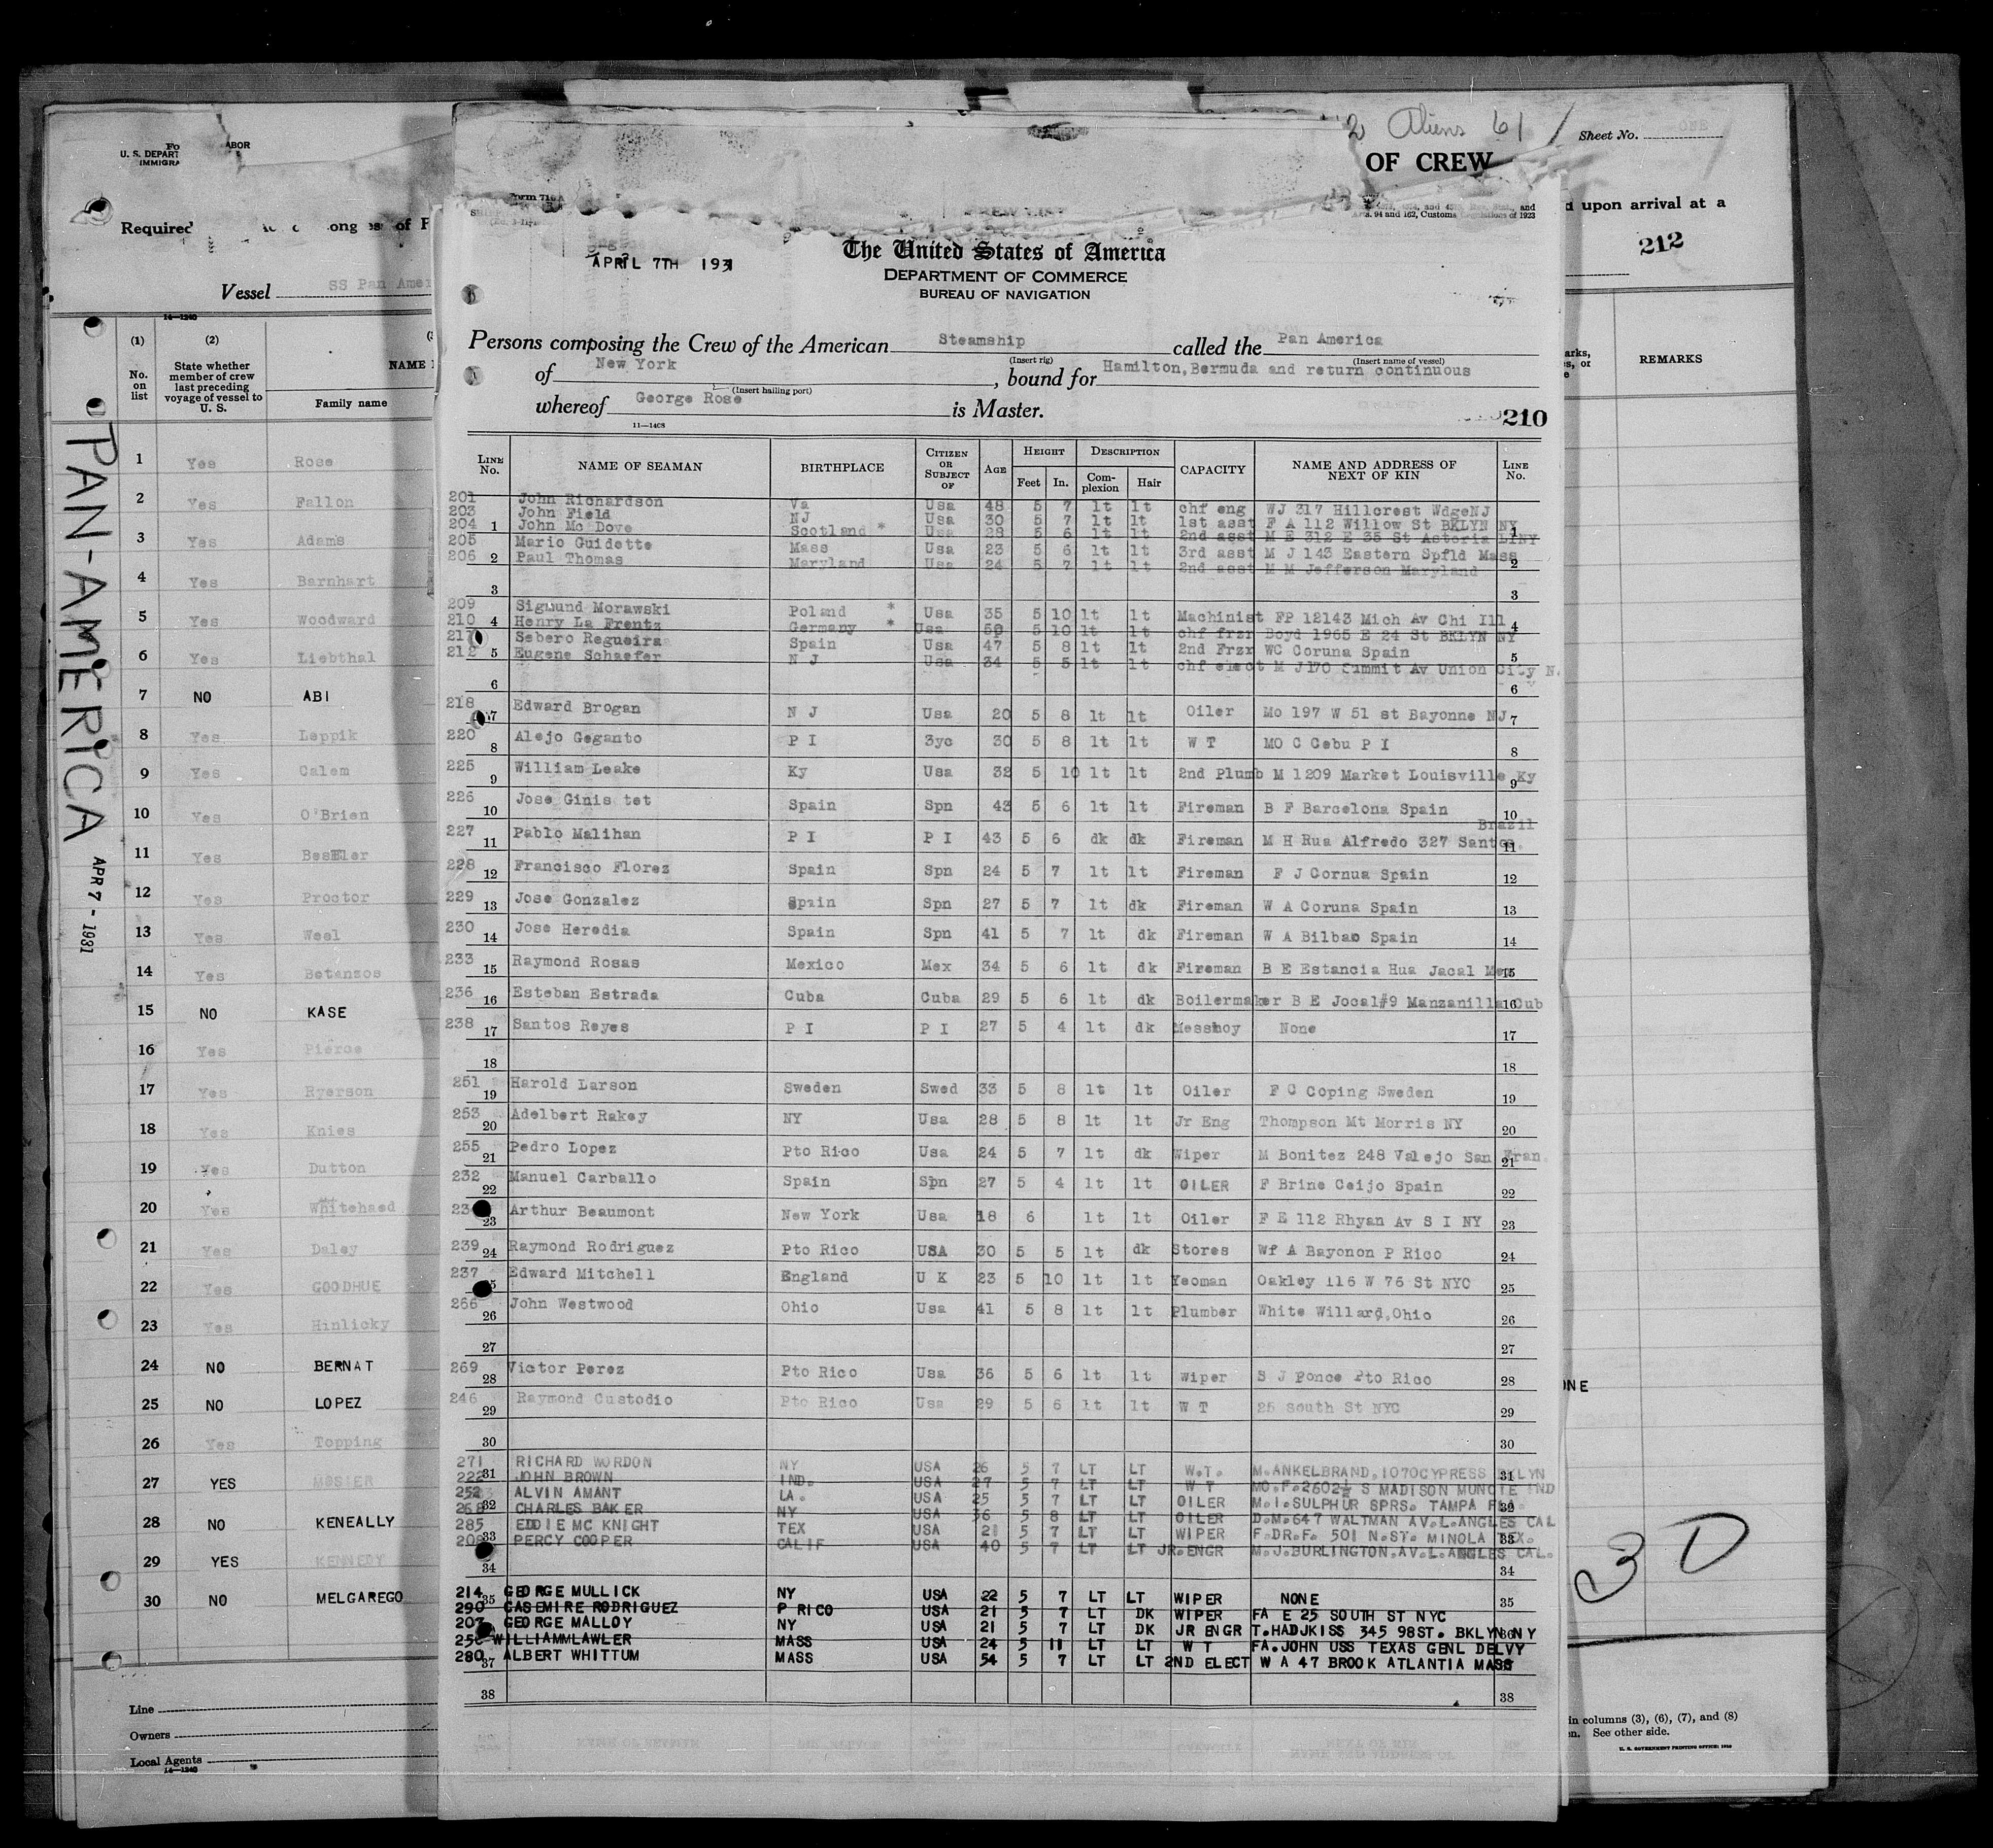 2 Aliens 61
Sheet No. ONE
U. S. DEPART ABOR
IMMIGRA
OF CREW
Form 710A
and 162, Customs Regulations of 1923
Required ong es of
d upon arrival at a
212
The United States of America
APRIL 7TH 1931
DEPARTMENT OF COMMERCE
BUREAU OF NAVIGATION
Vessel SS Pan Amer
14—1240
Persons composing the Crew of the American Steamship called the Pan America
(Insert rig) (Insert name of vessel)
of New York, bound for Hamilton, Bermuda and return continuous
(Insert hailing port)
whereof George Rose is Master.
11—1408
210
LINE No. NAME OF SEAMAN BIRTHPLACE CITIZEN OR SUBJECT OF AGE HEIGHT Feet In. DESCRIPTION Complexion Hair CAPACITY NAME AND ADDRESS OF NEXT OF KIN LINE No.
201 John Richardson Va Usa 48 5 7 lt lt chf eng WJ 317 Hillcrest WdgeNJ
203 John Field NJ Usa 30 5 7 lt lt 1st asst F A 112 Willow St BKLYN NY
204 1 John Mc Dove Scotland * Usa 28 5 6 lt lt 2nd asst M E 312 E 35 St Astoria LINY 1
205 Mario Guidette Mass Usa 23 5 6 lt lt 3rd asst M J 143 Eastern Spfld Mass
206 2 Paul Thomas Maryland Usa 24 5 7 lt lt 2nd asst M M Jefferson Maryland 2
3 3
209 Sigmund Morawski Poland * Usa 35 5 10 lt lt Machinist FP 12143 Mich Av Chi Ill
210 4 Henry La Frentz Germany * Usa 5 10 lt lt chf frzr Boyd 1965 E 24 St BKLYN NY 4
217 Sebero Regueira Spain Usa 47 5 8 lt lt 2nd Frzr WC Coruna Spain
212 5 Eugene Schaefer N J Usa 34 5 5 lt lt chf elect M J 170 Summit Av Union City N. 5
6 6
218 7 Edward Brogan N J Usa 20 5 8 lt lt Oiler Mo 197 W 51 st Bayonne NJ 7
220 8 Alejo Geganto P I 3yc 30 5 8 lt lt W T MO C Cebu P I 8
225 9 William Leake Ky Usa 32 5 10 lt lt 2nd Plumb M 1209 Market Louisville Ky 9
226 10 Jose Ginis tet Spain Spn 43 5 6 lt lt Fireman B F Barcelona Spain 10
Brazil
227 11 Pablo Malihan P I P I 43 5 6 dk dk Fireman M H Rua Alfredo 327 Santos. 11
228 12 Francisco Florez Spain Spn 24 5 7 lt lt Fireman F J Cornua Spain 12
229 13 Jose Gonzalez Spain Spn 27 5 7 lt dk Fireman W A Coruna Spain 13
230 14 Jose Heredia Spain Spn 41 5 7 lt dk Fireman W A Bilbao Spain 14
233 15 Raymond Rosas Mexico Mex 34 5 6 lt dk Fireman B E Estancia Hua Jacal Mex 15
236 16 Esteban Estrada Cuba Cuba 29 5 6 lt dk Boilermaker B E Jocal#9 Manzanilla Cub 16
238 17 Santos Reyes P I P I 27 5 4 lt dk Messboy None 17
18 18
251 19 Harold Larson Sweden Swed 33 5 8 lt lt Oiler F C Coping Sweden 19
253 20 Adelbert Rakey NY Usa 28 5 8 lt lt Jr Eng Thompson Mt Morris NY 20
255 21 Pedro Lopez Pto Rico Usa 24 5 7 lt dk Wiper M Bonitez 248 Valejo San Fran. 21
232 22 Manuel Carballo Spain Spn 27 5 4 lt lt OILER F Brine Ceijo Spain 22
23 23 Arthur Beaumont New York Usa 18 6 lt lt Oiler F E 112 Rhyan Av S I NY 23
239 24 Raymond Rodriguez Pto Rico USA 30 5 5 lt dk Stores Wf A Bayonon P Rico 24
237 5 Edward Mitchell England U K 23 5 10 lt lt Yeoman Oakley 116 W 76 St NYC 25
266 26 John Westwood Ohio Usa 41 5 8 lt lt Plumber White Willard, Ohio 26
27 27
269 28 Victor Perez Pto Rico Usa 36 5 6 lt lt Wiper S J Ponce Pto Rico 28
246 29 Raymond Custodio Pto Rico Usa 29 5 6 lt lt W T 25 South St NYC 29
30 30
271 RICHARD WORDON NY USA 26 5 7 LT LT W.T. M.ANKELBRAND,1070CYPRESS BKLYN
222 31 JOHN BROWN IND. USA 27 5 7 LT LT W T MO.F.2602½ S MADISON MUNCIE IND 31
252 ALVIN AMANT LA. USA 25 5 7 LT LT OILER M.I.SULPHUR SPRS. TAMPA FLA.
268 32 CHARLES BAKER NY USA 36 5 8 LT LT OILER D.M.647 WALTMAN AV.L.ANGLES CAL 32
285 EDDIE MC KNIGHT TEX USA 21 5 7 LT LT WIPER F.DR.F. 501 N.ST. MINOLA TEX.
33 PERCY COOPER CALIF USA 40 5 7 LT LT JR.ENGR M.J.BURLINGTON.AV.L.ANGLES CAL. 33
34 34
214 GEORGE MULLICK NY USA 22 5 7 LT LT WIPER NONE
290 35 CASEMIRE RODRIGUEZ P RICO USA 21 5 7 LT DK WIPER FA E 25 SOUTH ST NYC 35
207 GEORGE MALLOY NY USA 21 5 7 LT DK JR ENGR T.HADJKISS 345 98ST. BKLYN NY
WILLIAMMLAWLER MASS USA 24 5 11 LT LT W T FA.JOHN USS TEXAS GENL DELVY 36
280 37 ALBERT WHITTUM MASS USA 54 5 7 LT LT 2ND ELECT W A 47 BROOK ATLANTIA MASS
38 38
PAN-AMERICA APR 7 - 1931
(1) (2)
No. on list State whether member of crew last preceding voyage of vessel to U. S. NAME
Family name
1 Yes Rose
2 Yes Fallon
3 Yes Adams
4 Yes Barnhart
5 Yes Woodward
6 Yes Liebthal
7 NO ABI
8 Yes Leppik
9 Yes Calem
10 Yes O'Brien
11 Yes Bessler
12 Yes Proctor
13 Yes Weel
14 Yes Betanzos
15 NO KASE
16 Yes Pierce
17 Yes Ryerson
18 Yes Knies
19 Yes Dutton
20 Yes Whitehaed
21 Yes Daley
22 Yes GOODHUE
23 Yes Hinlicky
24 NO BERNAT
25 NO LOPEZ
26 Yes Topping
27 YES MOSIER
28 NO KENEALLY
29 YES KENNEDY
30 NO MELGAREGO
Line
Owners
Local Agents
14—1240
REMARKS
ONE
3 D
in columns (3), (6), (7), and (8)
See other side.
U. S. GOVERNMENT PRINTING OFFICE